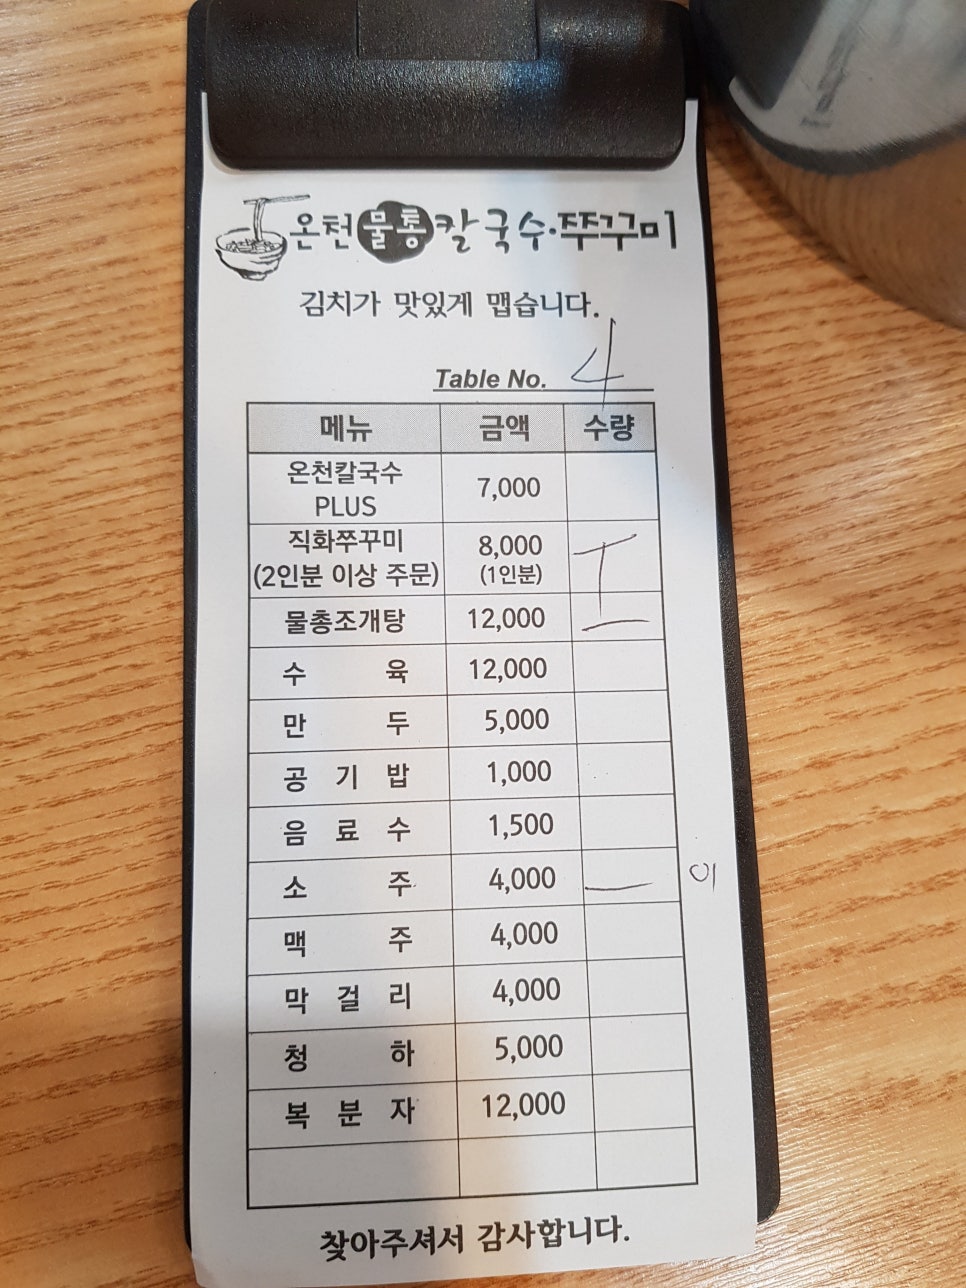 온천물총칼국수·쭈꾸미
김치가 맛있게 맵습니다.
Table No. 4
메뉴 금액 수량
온천칼국수
PLUS 7,000
직화쭈꾸미 8,000
(2인분 이상 주문) (1인분)
물총조개탕 12,000 一
수 육 12,000
만 두 5,000
공 기 밥 1,000
음 료 수 1,500
소 주 4,000 一 이
맥 주 4,000
막 걸 리 4,000
청 하 5,000
복 분 자 12,000
찾아주셔서 감사합니다.